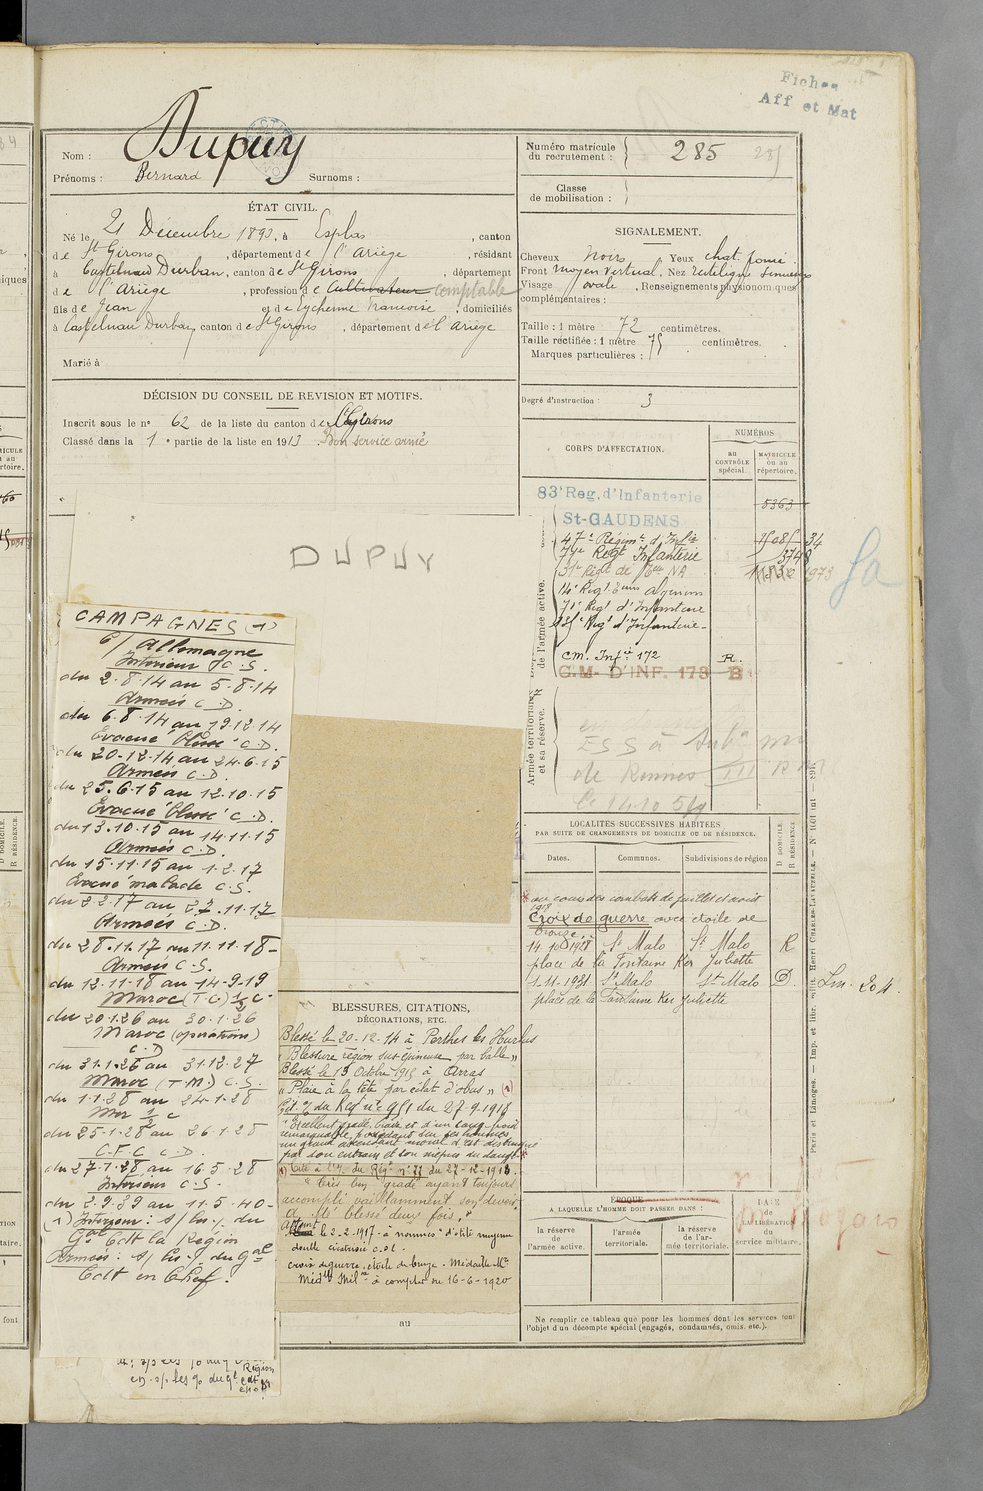 Fiches
Aff et Mat
Nom : Dupuy
Prénoms : Bernard Surnoms :
Numéro matricule
du recrutement : 285
Classe
de mobilisation :
ÉTAT CIVIL.
Né le 21 Décembre 1893, à Esplas, canton
de St Girons, département de l'Ariège, résidant
à Castelnau Durban, canton de St Girons, département
de l'Ariège, profession de Cultivateur comptable
fils de Jean et de Eychenne Francoise, domiciliés
à Castelnau Durban, canton de St Girons, département de l'Ariège
Marié à
SIGNALEMENT.
Cheveux Noirs, Yeux chat. foncé
Front moyen vertical, Nez rectiligne sinueux
Visage ovale, Renseignements physionomiques
complémentaires :
Taille : 1 mètre 72 centimètres.
Taille rectifiée : 1 mètre 75 centimètres.
Marques particulières :
Degré d'instruction : 3
DÉCISION DU CONSEIL DE REVISION ET MOTIFS.
Inscrit sous le n° 62 de la liste du canton de St Girons
Classé dans la 1e partie de la liste en 1913 Bon service armé
CORPS D'AFFECTATION.
NUMÉROS
au
CONTRÔLE
spécial.
MATRICULE
ou au
répertoire.
83e Reg. d'Infanterie
St-GAUDENS
5363
47e Régimt d'Infie
Regt Infanterie
3748
70e Regt d'Infanterie
Regt d'Infanterie
cm. Infie 172 R.
C.M. D'INF. 173 B
de l'armée active.
Armée territoriale
et sa réserve.
de Rennes
DUPUY
CAMPAGNES (1)
c/ Allemagne
Intérieur C.S.
du 2.8.14 au 5.8.14
Armées C.D.
du 6.8.14 au 19.12.14
Evacué blessé C.D.
du 20.12.14 au 24.6.15
Armées C.D.
du 25.6.15 au 12.10.15
Evacué blessé C.D.
du 13.10.15 au 14.11.15
Armées C.D.
du 15.11.15 au 1.2.17
Evacué malade C.S.
du 2.2.17 au 27.11.17
Armées C.D.
du 28.11.17 au 11.11.18
Armées C.S.
du 12.11.18 au 14.9.19
Maroc (T.C) 1/2 C.
du 20.1.26 au 30.1.26
Maroc (opérations)
C.D
du 31.1.26 au 31.12.27
Maroc (T.M.) C.S.
du 1.1.28 au 24.1.28
Mer 1/2 C
du 25.1.28 au 26.1.28
C.F.C C.D.
du 27.1.28 au 16.5.28
Intérieur C.S.
du 2.9.39 au 11.5.40
(1) Intérieur : s/ les %. du
Gal Cdt la Région
Armées : s/ les %. du Gal
Cdt en Chef.
Région
LOCALITÉS SUCCESSIVES HABITÉES
PAR SUITE DE CHANGEMENTS DE DOMICILE OU DE RÉSIDENCE.
Dates.
Communes.
Subdivisions de région
D DOMICILE.
R RÉSIDENCE.
au cours des combats de juillet et août
1918
Croix de guerre avec étoile de
bronze.
14.10.1928 St Malo St Malo R
place de la Fontaine Ker Juliette
1.11.1931 St Malo St Malo D.
place de la Fontaine Ker Juliette
204.
BLESSURES, CITATIONS,
DÉCORATIONS, ETC.
Blessé le 20-12-14 à Perthes les Hurlus
"Blessure région sus-épineuse par balle"
Blessé le 13 Octobre 1915 à Arras
"Plaie à la tête par éclat d'obus"
Cit. % du Regt n° 951 du 27-9-1918
"Excellent gradé, brave et d'un sang froid
remarquable, possédant sur ses hommes
un grand ascendant moral s'est distingué
par son entrain et son mépris du danger
Cité à l'%. du Régt n° 77 du 27-12-1915.
"Très bon gradé ayant toujours
accompli vaillamment son devoir,
a été blessé deux fois."
Atteint le 2-2-1917
double
croix de guerre, étoile de bronze. Médaille Mre
Médlle Milre à compter du 16-6-1920
au
ÉPOQUE
A LAQUELLE L'HOMME DOIT PASSER DANS :
la réserve
de
l'armée active.
l'armée
territoriale.
la réserve
de l'ar-
mée territoriale.
DATE
de
LA LIBÉRATION
du
service militaire.
Ne remplir ce tableau que pour les hommes dont les services font
l'objet d'un décompte spécial (engagés, condamnés, omis, etc.).
Paris et Limoges. — Imp. et libr. milit. Henri CHARLES-LAVAUZELLE.